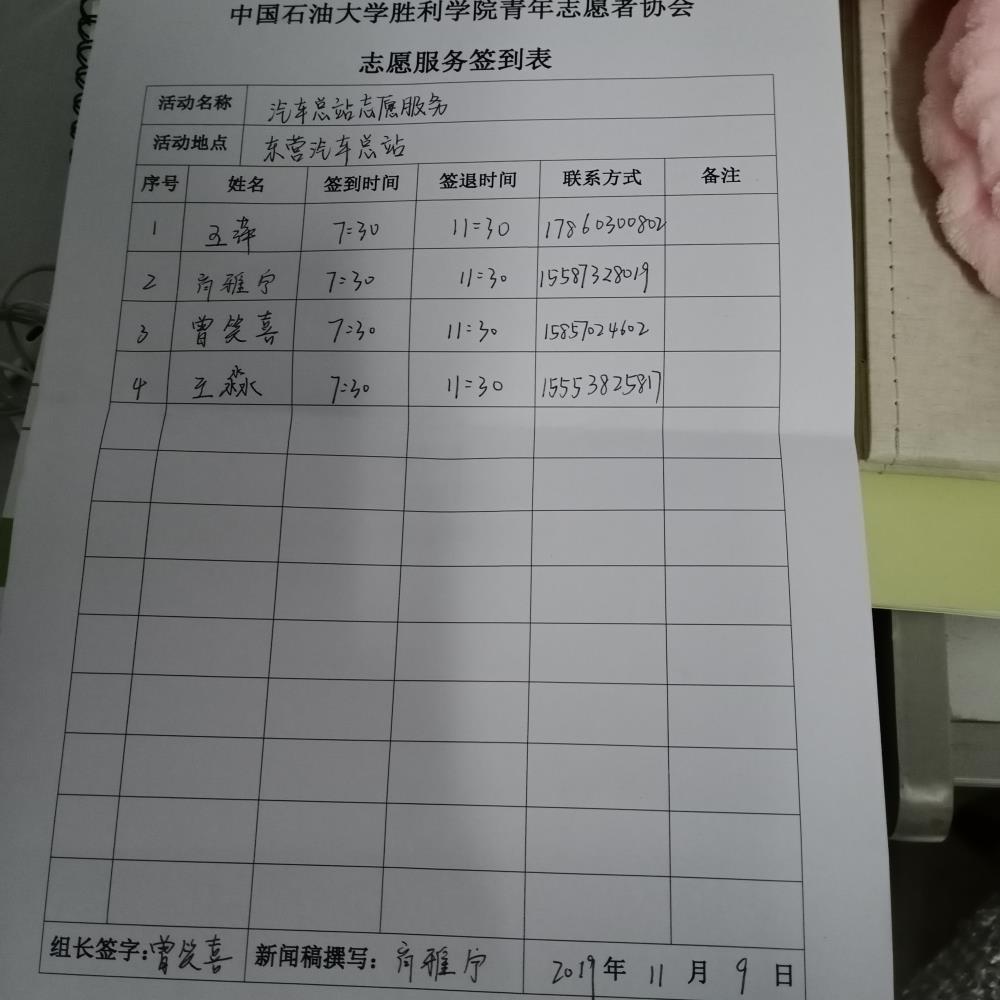 中国石油大学胜利学院青年志愿者协会
志愿服务签到表
活动名称 汽车总站志愿服务
活动地点 东营汽车总站
序号 姓名 签到时间 签退时间 联系方式 备注
1 王萍 7:30 11:30 17860300802
2 商雅宁 7:30 11:30 15587328019
3 曾笑喜 7:30 11:30 15857024602
4 王淼 7:30 11:30 15553825817
组长签字:曾笑喜 新闻稿撰写:商雅宁 2019年 11 月 9 日